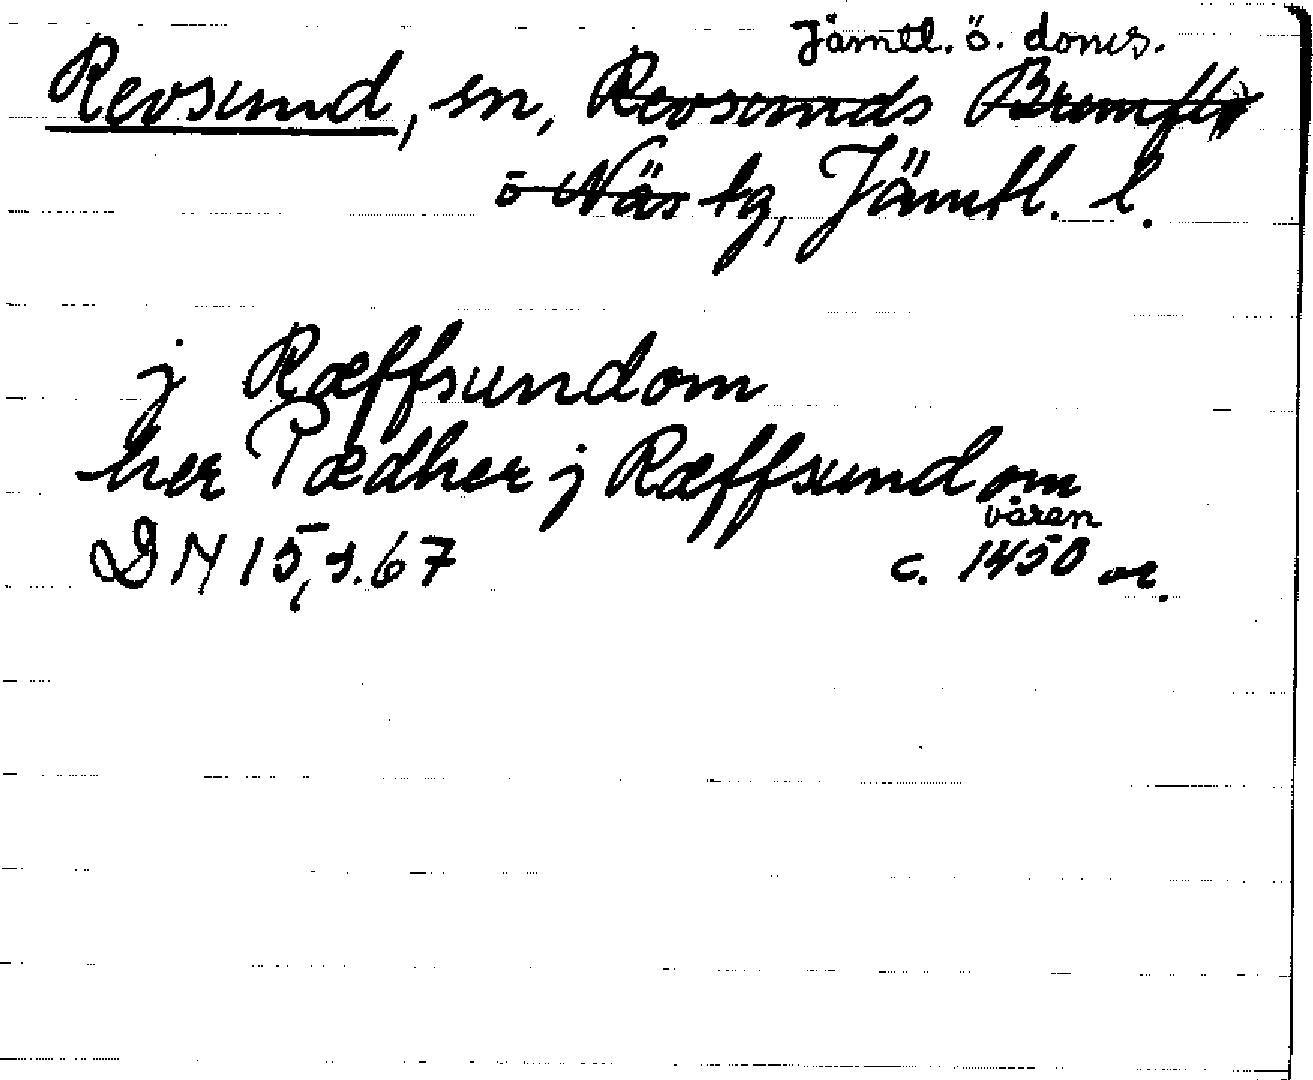 Jämtl. ö. doms.
Revsund, sn, Revsunds Brunflo
o Näs tg, Jämtl. l.
j Ræffsundom
her Pædher j Ræffsundom
våren
DN 15, s. 67 c. 1450 or.